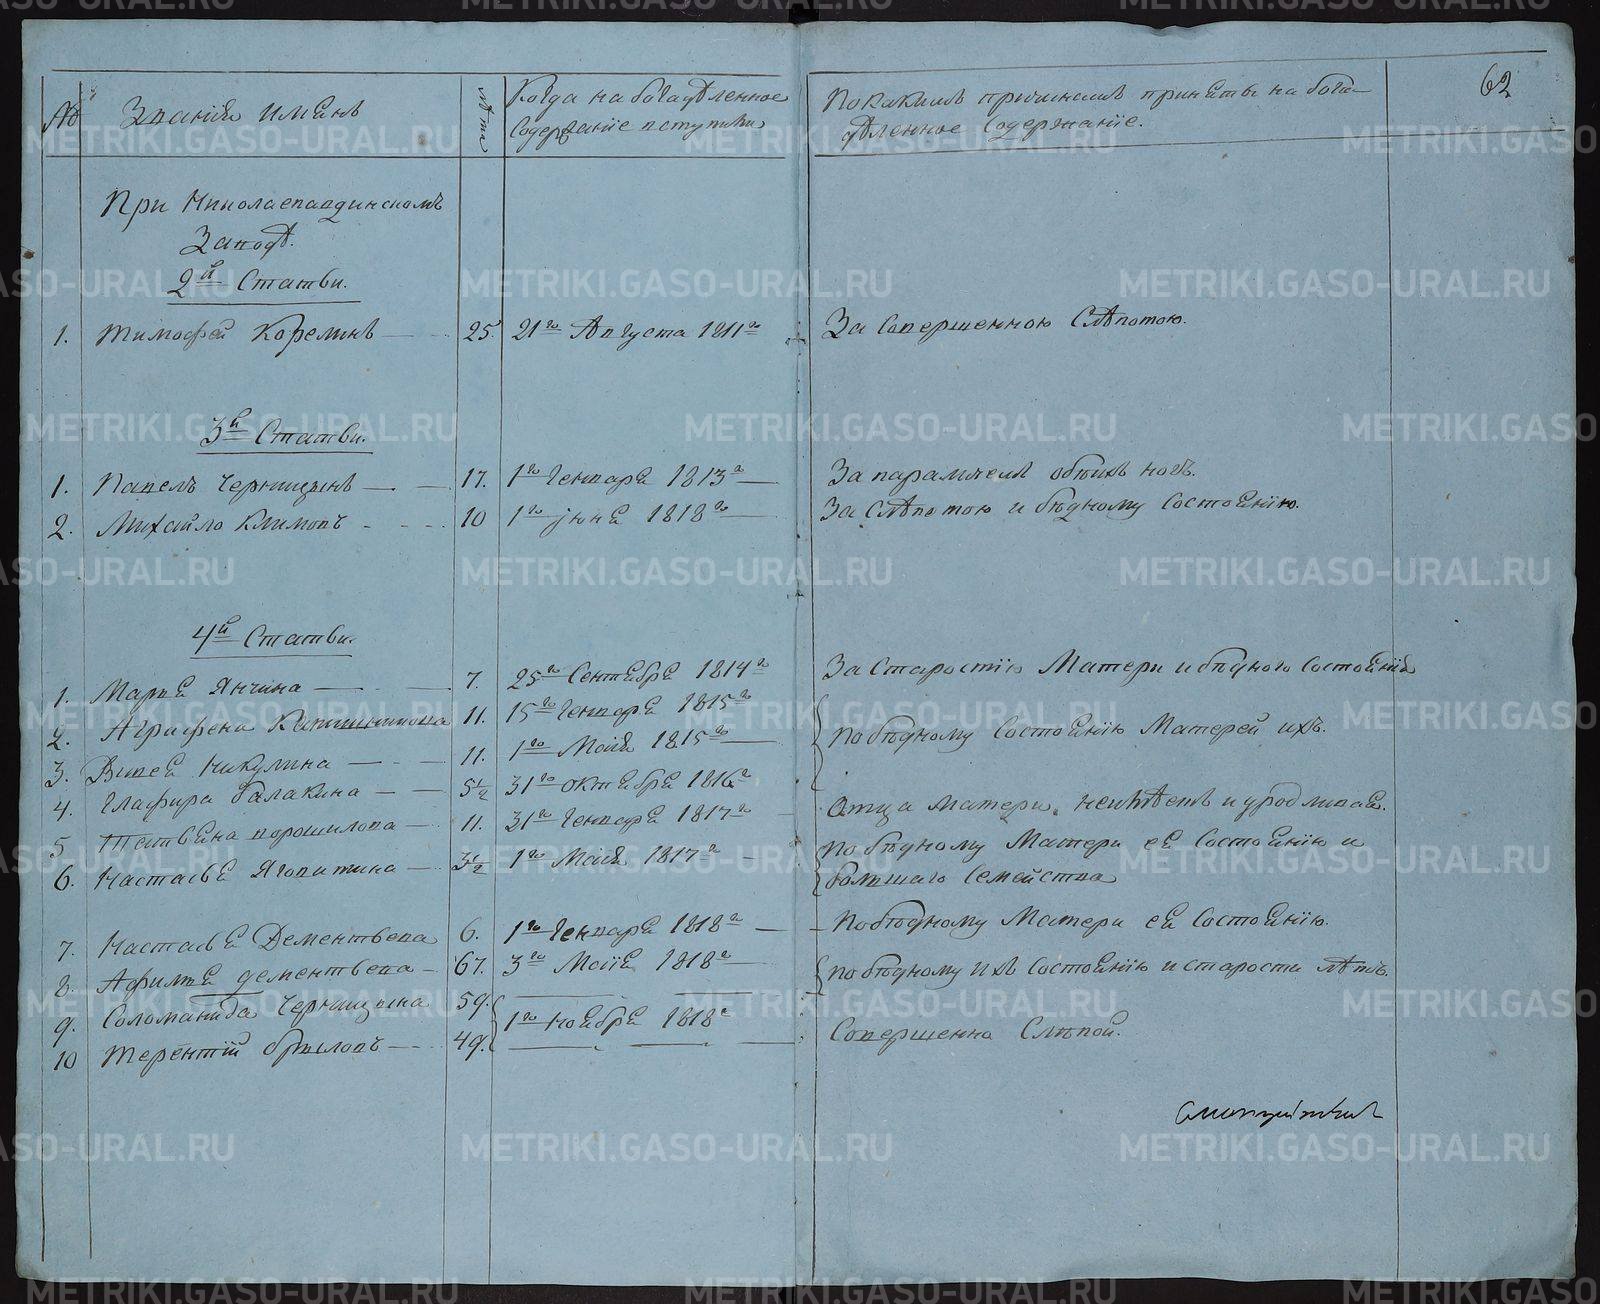 62
№ Званія именъ лѣта Когда на богадѣленное содержаніе поступили По какимъ причинамъ приняты на бога-
дѣленное содержаніе.
При Николаепавдинскомъ
Заводѣ.
2й Статьи.
1. Тимофей Корелинъ 25. 21го Августа 1811го За совершенною слѣпотою.
3й Статьи.
1. Павелъ Черницынъ 17. 1го Генваря 1813го За параличемъ обѣихъ ногъ.
2. Михайло Климовъ 10 1го Іюня 1818го За слѣпотою и бѣдному состоянію.
4й Статьи.
1. Марья Янчина 7. 25го Сентября 1814го За старостію матери и бѣдного состоянія
2. Аграфена 11. 15го Генваря 1815го По бѣдному состоянію матерей ихъ.
3. Никулина 11. 1го Маія 1815го
4. Глафира Балакина 5½ 31го Октября 1816го Отца матери неимѣетъ и уродливая.
5 Татьяна Ворошилова 11. 31го Генваря 1817го По бѣдному матери ея состоянію и
6. Настасья Яговитина 3½ 1го Маія 1817го большаго семейства
7. Настасья Дементьева 6. 1го Генваря 1818го По бѣдному матери ея состоянію.
8. Афимья Дементьева 67. 3го Маія 1818го По бѣдному ихъ состоянію и старости лѣтъ.
9. Соломанида Черницына 59.
10 Терентій Брыловъ 49. 1го Ноября 1818го Совершенно слѣпой.
METRIKI.GASO-URAL.RU